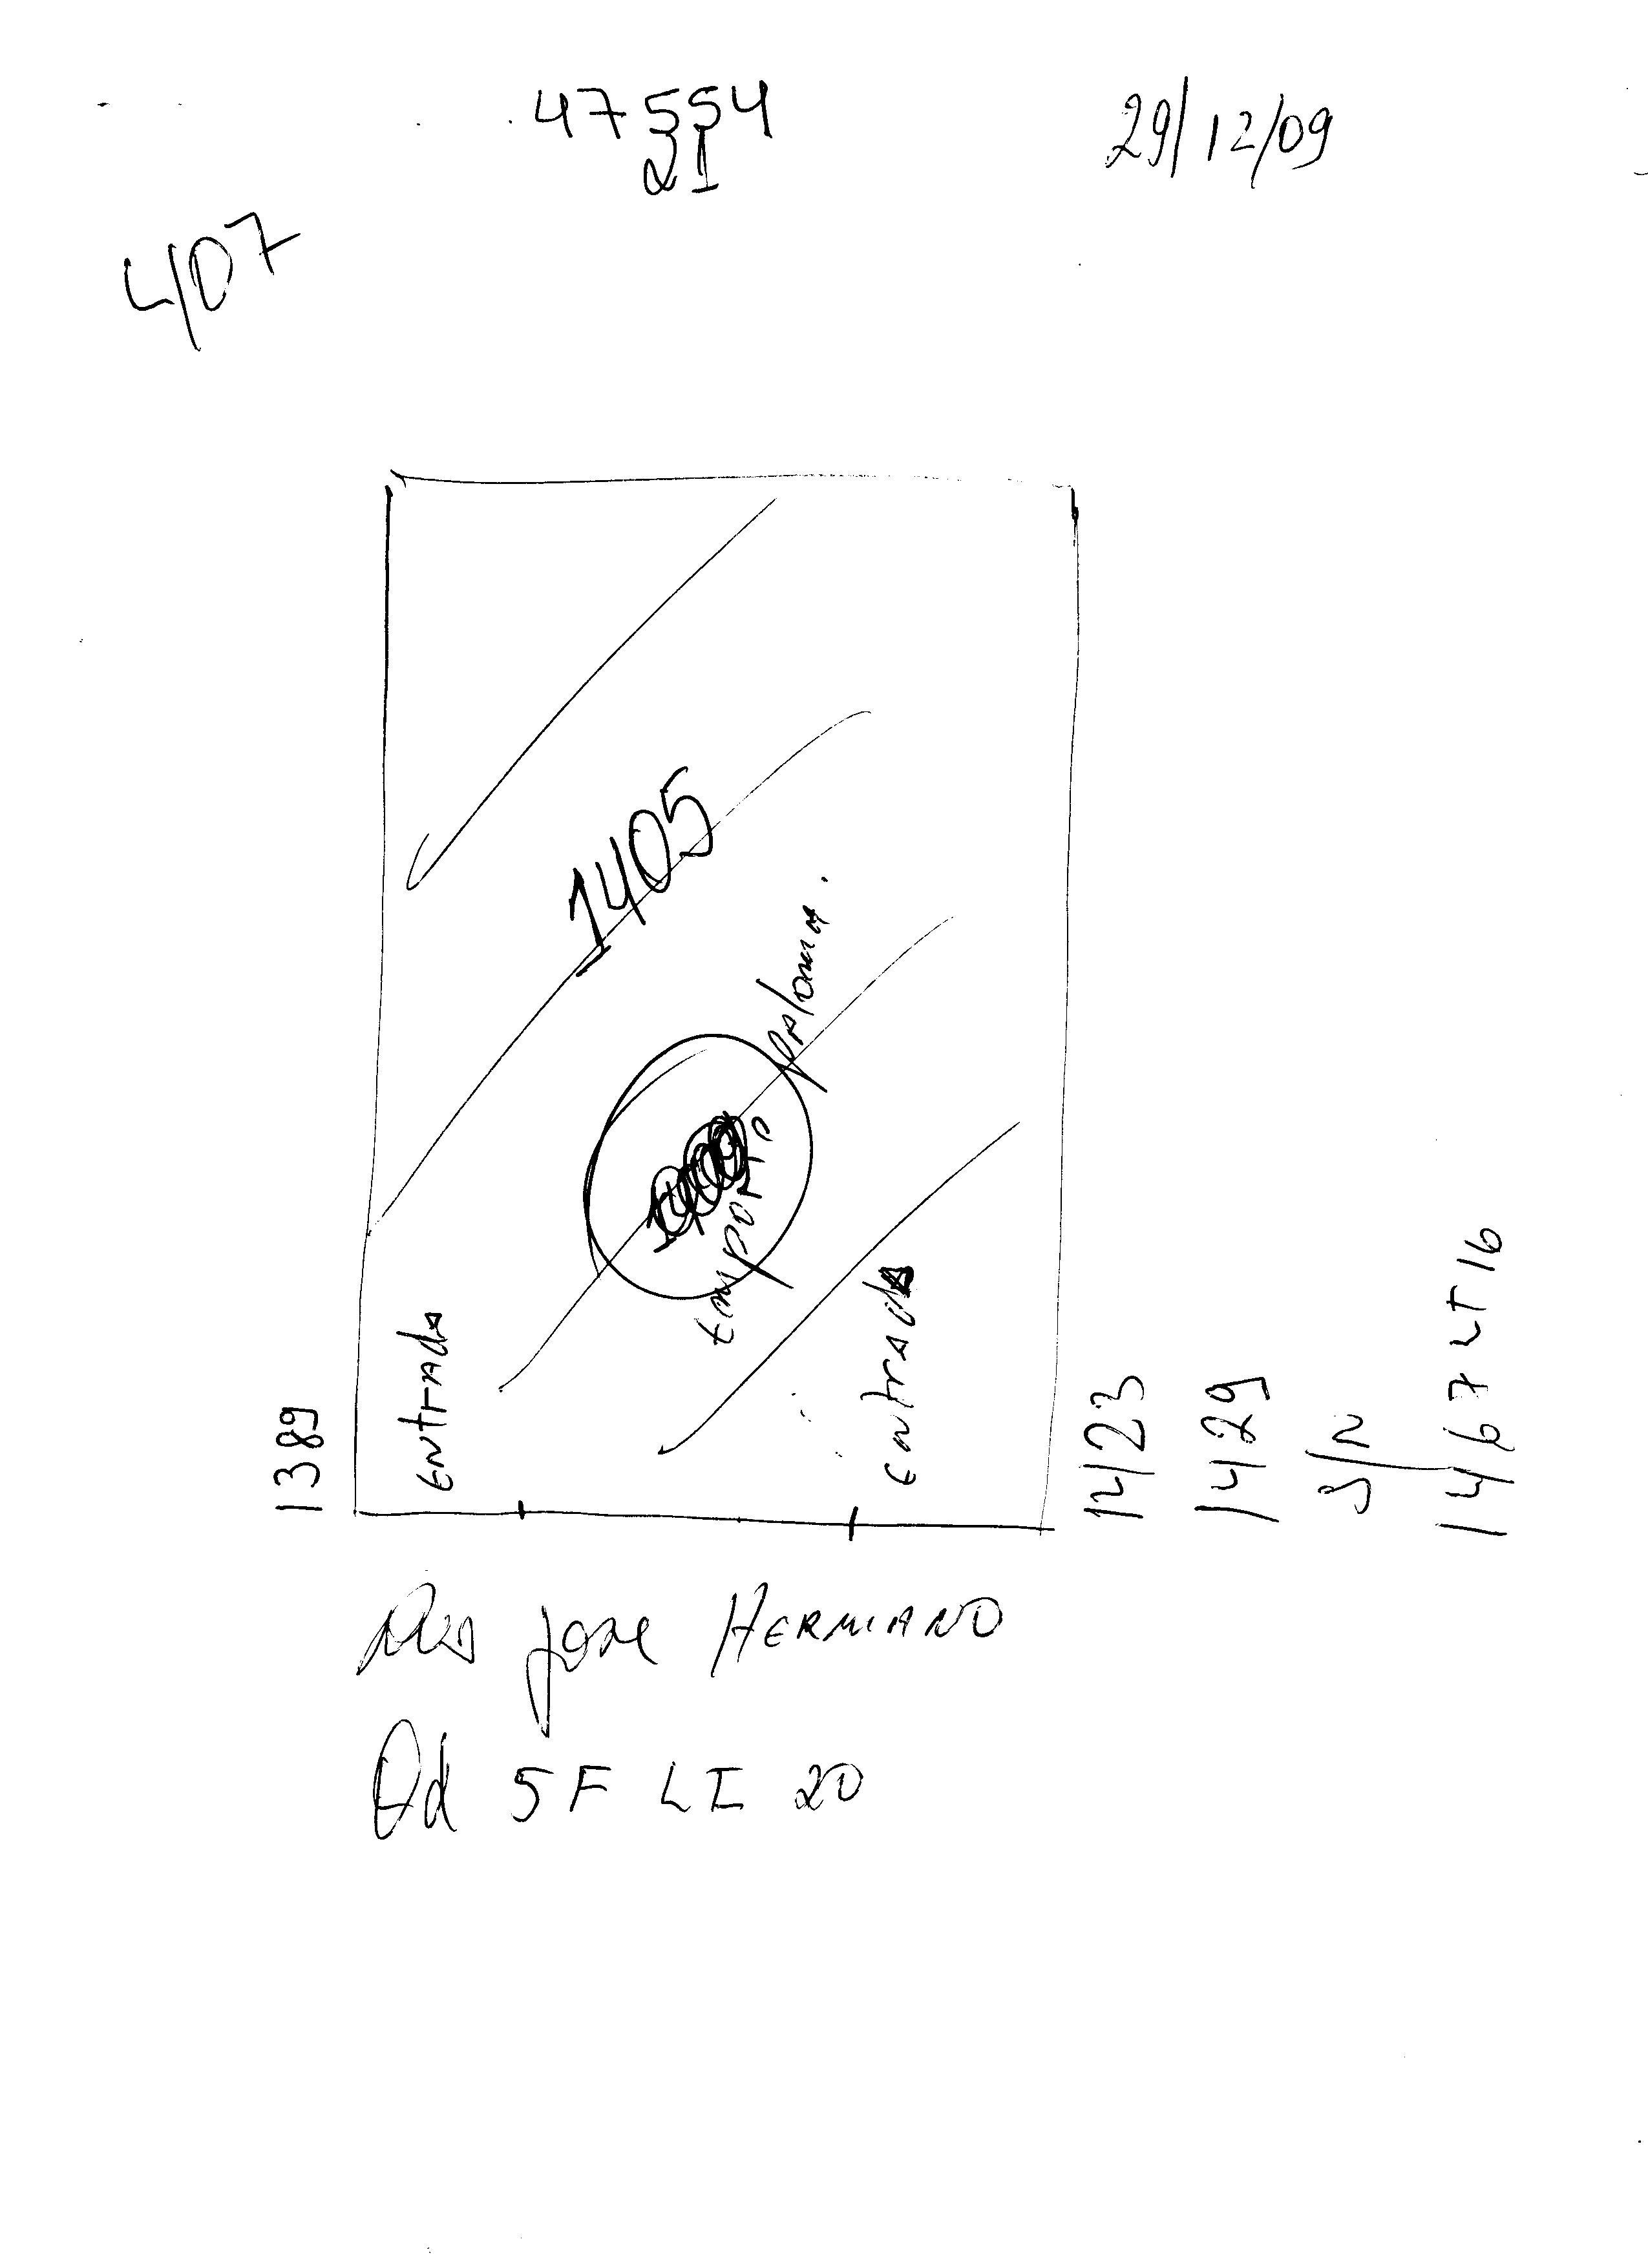 47554
21
29/12/09
407
1405
paloma.
Emporio
Entrada
Entrada
1389
1423
1429
S/N
1467 LT 16
Rua Jose HERMANO
Qd 5F LT 20